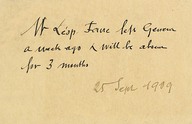 Mr Léop. Favre left Geneva
a week ago & will be absent
for 3 months
25 Sept 1909